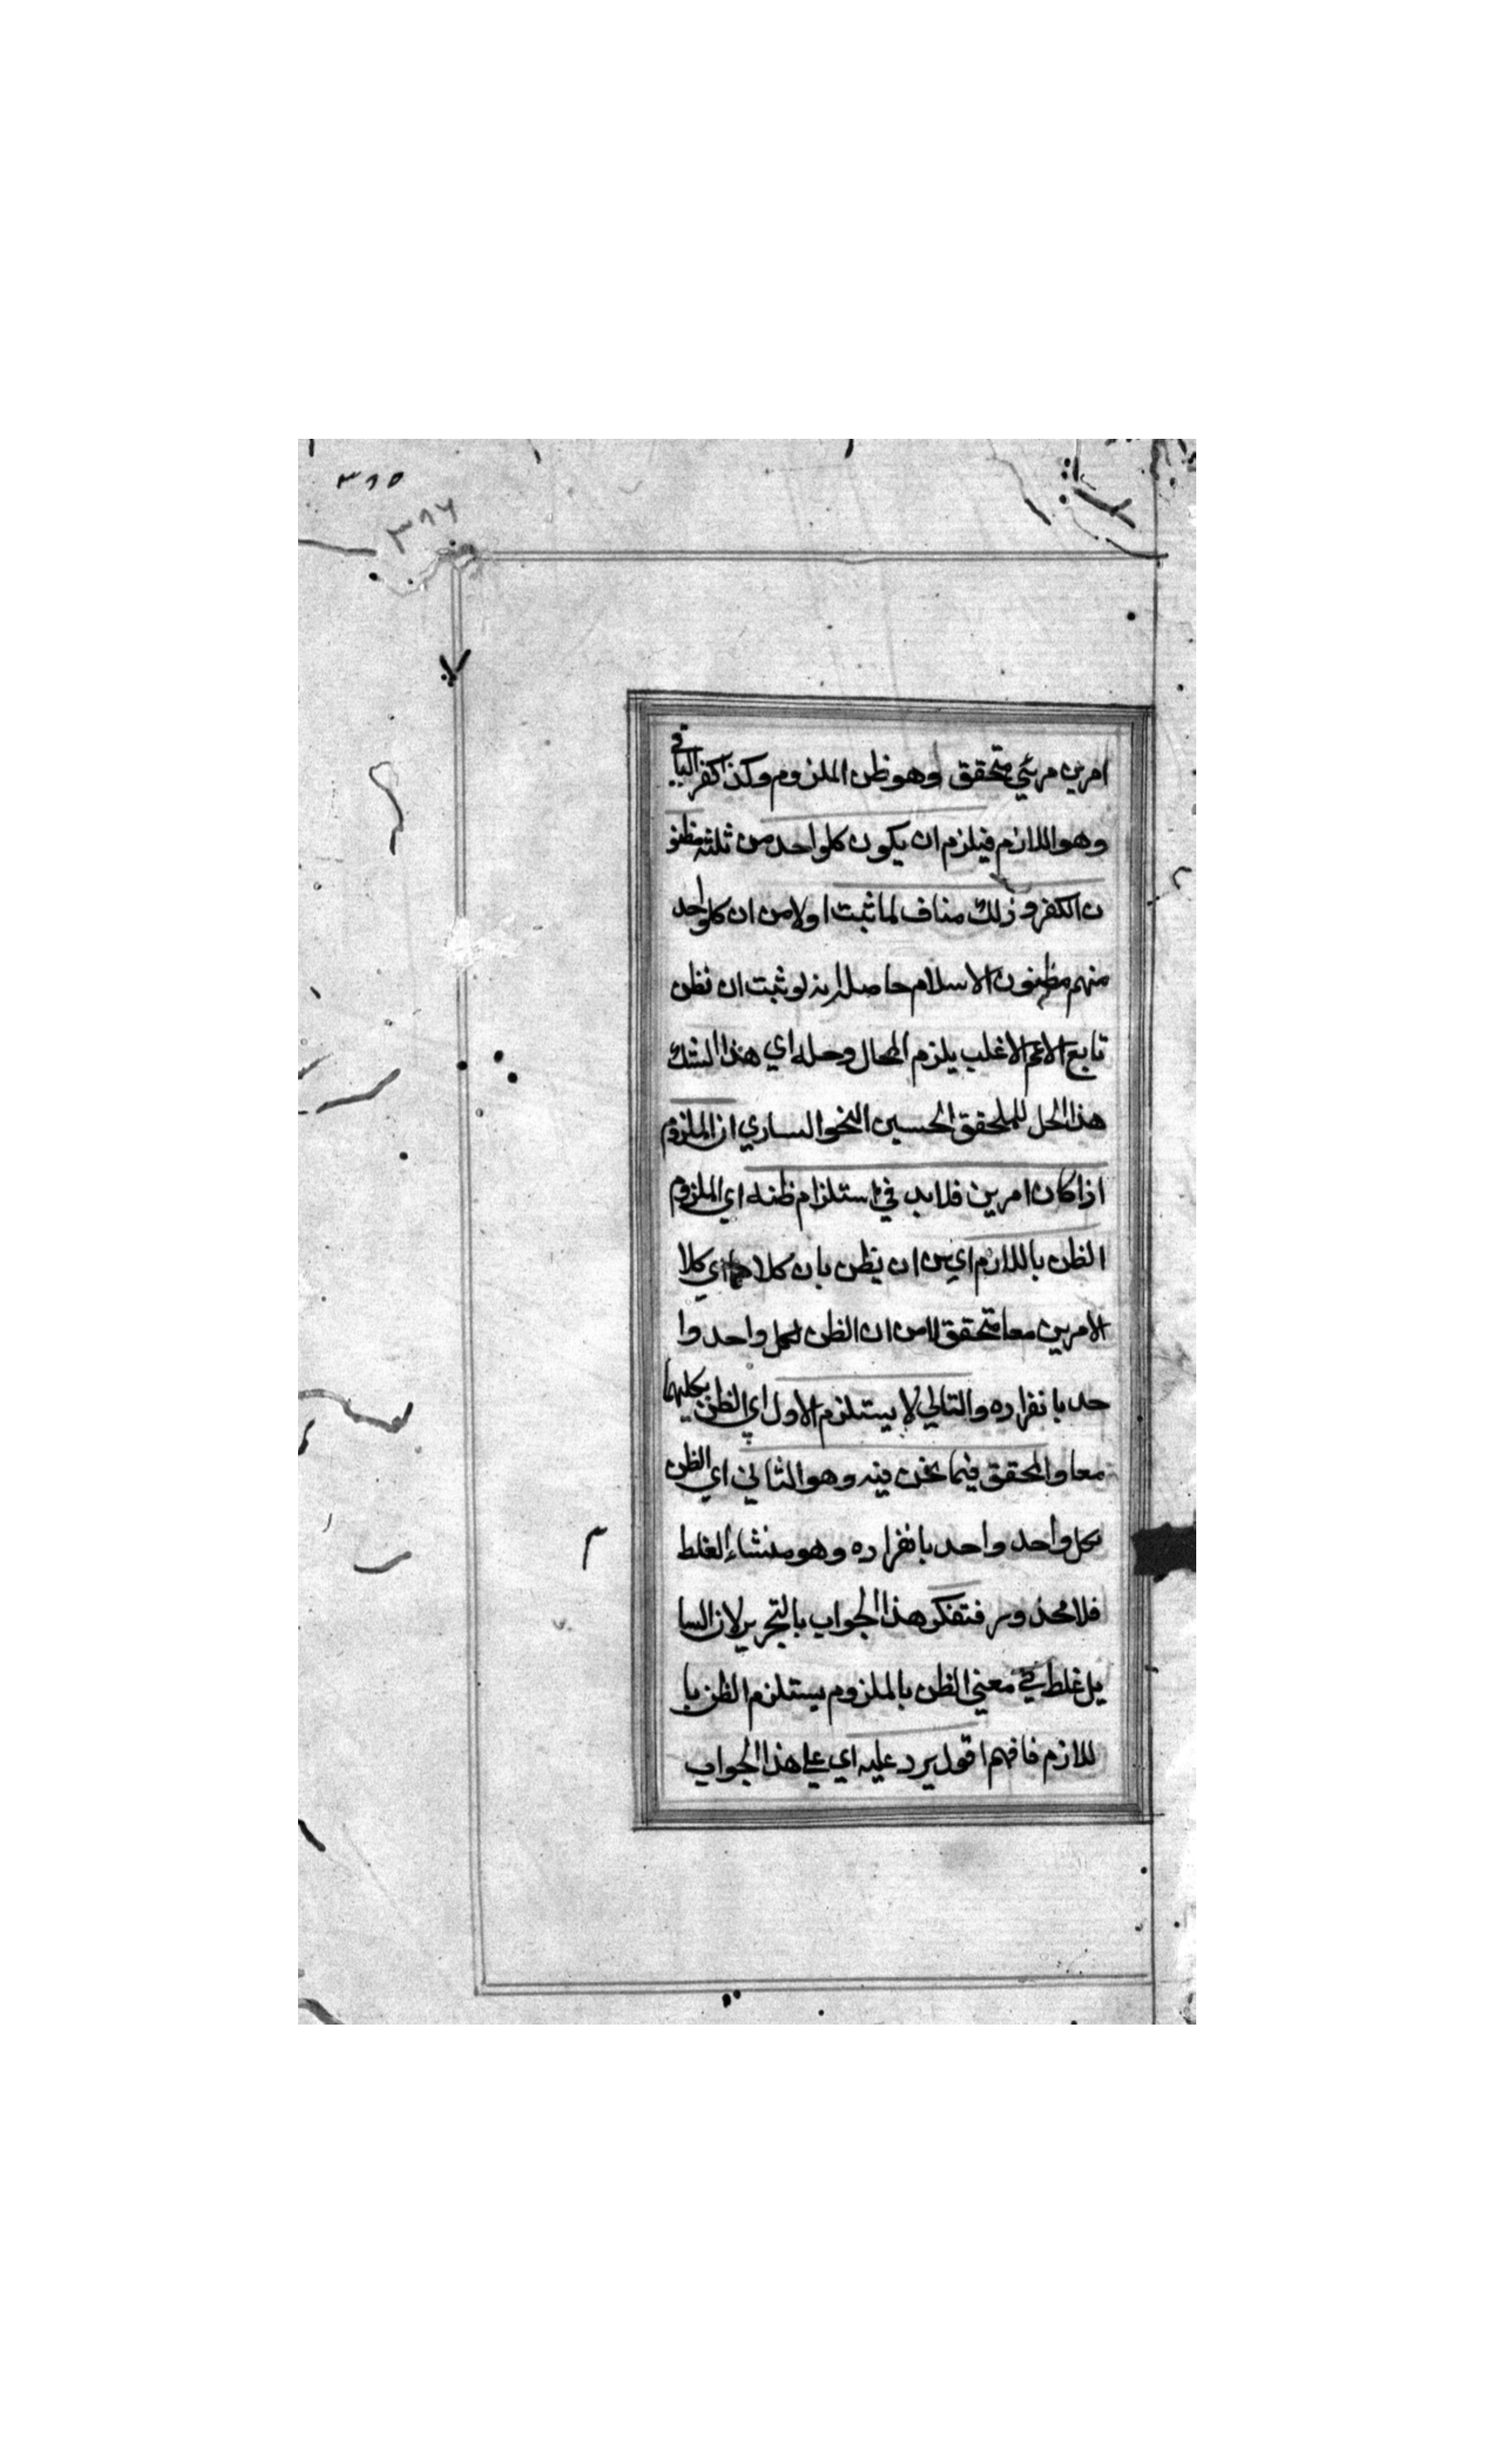 ٣٨٥
٣٨٦
امرين مرئي متحقق وهو ظن الملزوم وكذا كفر الباقي
وهو اللازم فيلزم ان يكون كلواحد من ثلثة مظنو
ن الكفر وذلك مناف لما ثبت اولا من ان كلواحد
منهم مظنون الاسلام حاصله انه لو ثبت ان نظن
تابع الاعم الاغلب يلزم المحال وحله اي هذا الشك
هذا الحل للمحقق الحسين الخوانساري ان الملزوم
اذا كان امرين فلابد في استلزام ظنه اي الملزوم
الظن باللازم اي من ان يظن بان كلاهما اي كلا
الامرين معا متحقق لا من ان الظن لكل واحد وا
حد بانفراده والتالي لا يستلزم الاول اي الظن بكليهما
معا والمحقق فيما نحن فيه وهو الثاني اي الظن
بكل واحد واحد بانفراده وهو منشاء الغلط
فلا محذور فتفكر هذا الجواب بالتحرير لان السا
يل غلط في معني الظن بالملزوم يستلزم الظن با
للازم فافهم اقول يرد عليه اي علي هذا الجواب